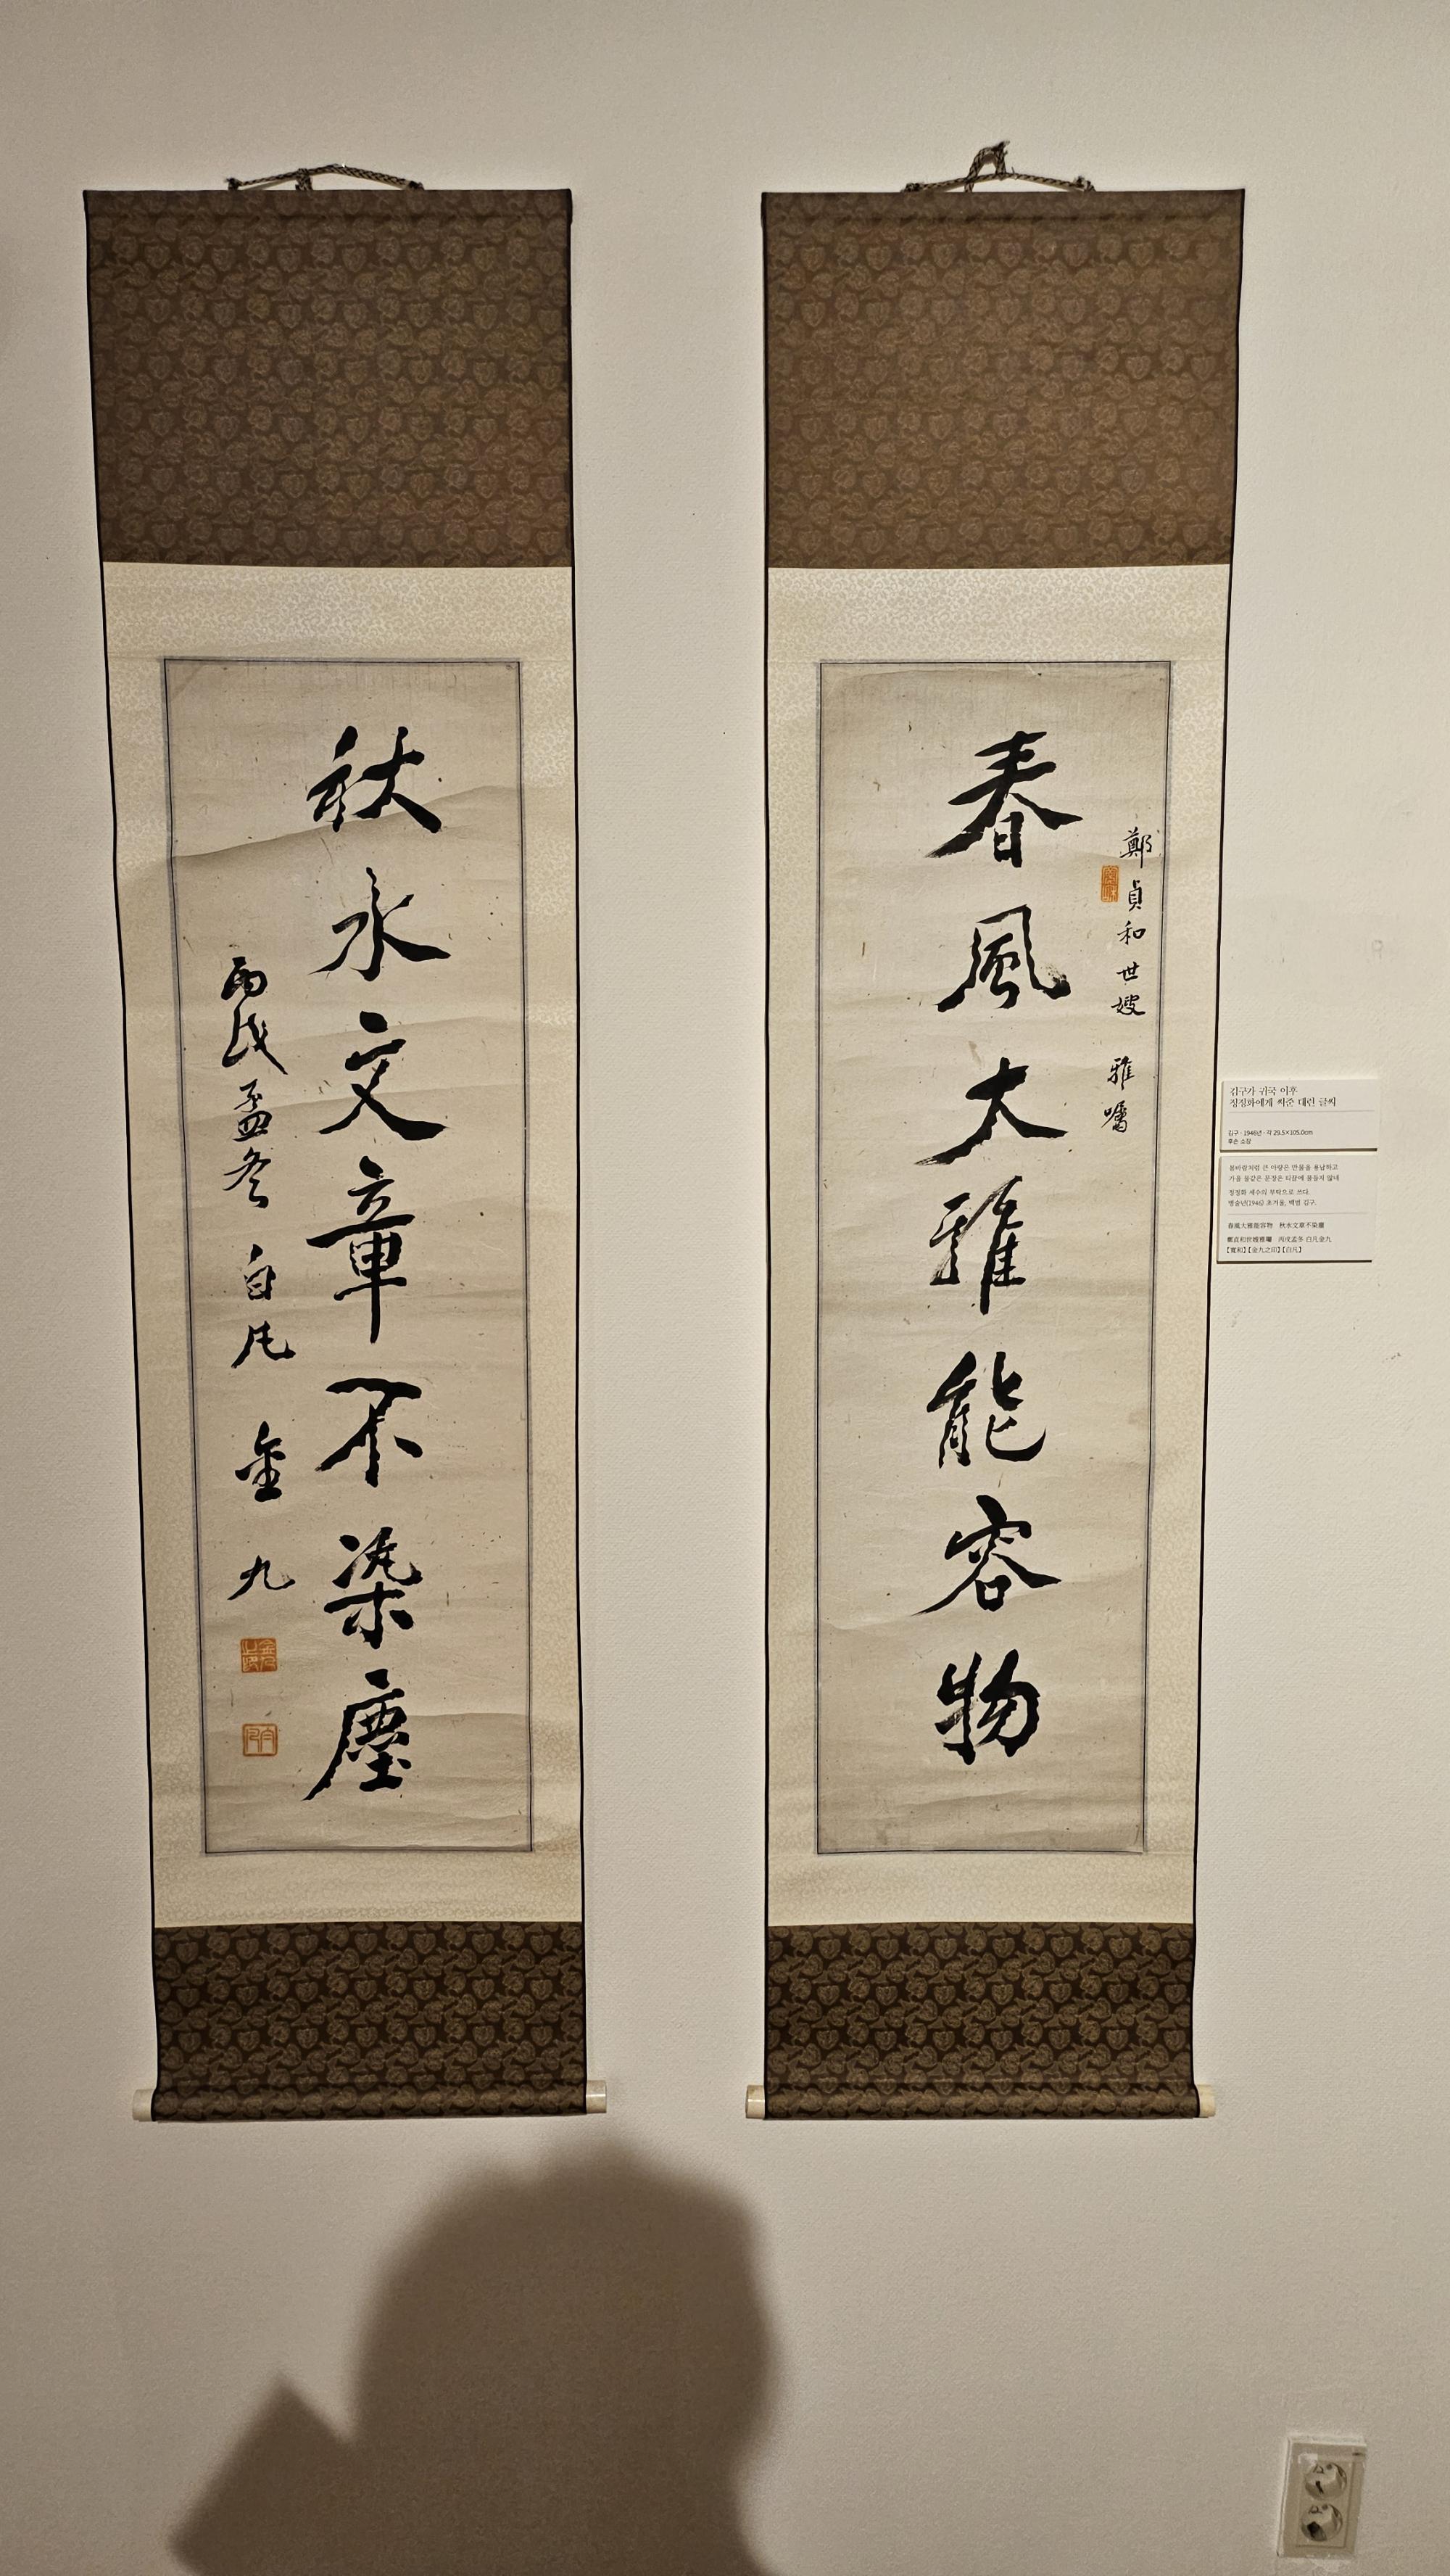 鄭貞和世嫂 雅囑
春風大雅能容物
秋水文章不染塵
丙戌孟冬 白凡 金九
김구가 귀국 이후
정정화에게 써준 대련 글씨
김구 · 1946년 · 각 29.5×105.0cm
후손 소장
봄바람처럼 큰 아량은 만물을 용납하고
가을 물같은 문장은 티끌에 물들지 않네
정정화 세수의 부탁으로 쓰다.
병술년(1946) 초겨울, 백범 김구.
春風大雅能容物 秋水文章不染塵
鄭貞和世嫂雅囑 丙戌孟冬 白凡金九
【寬和】【金九之印】【白凡】